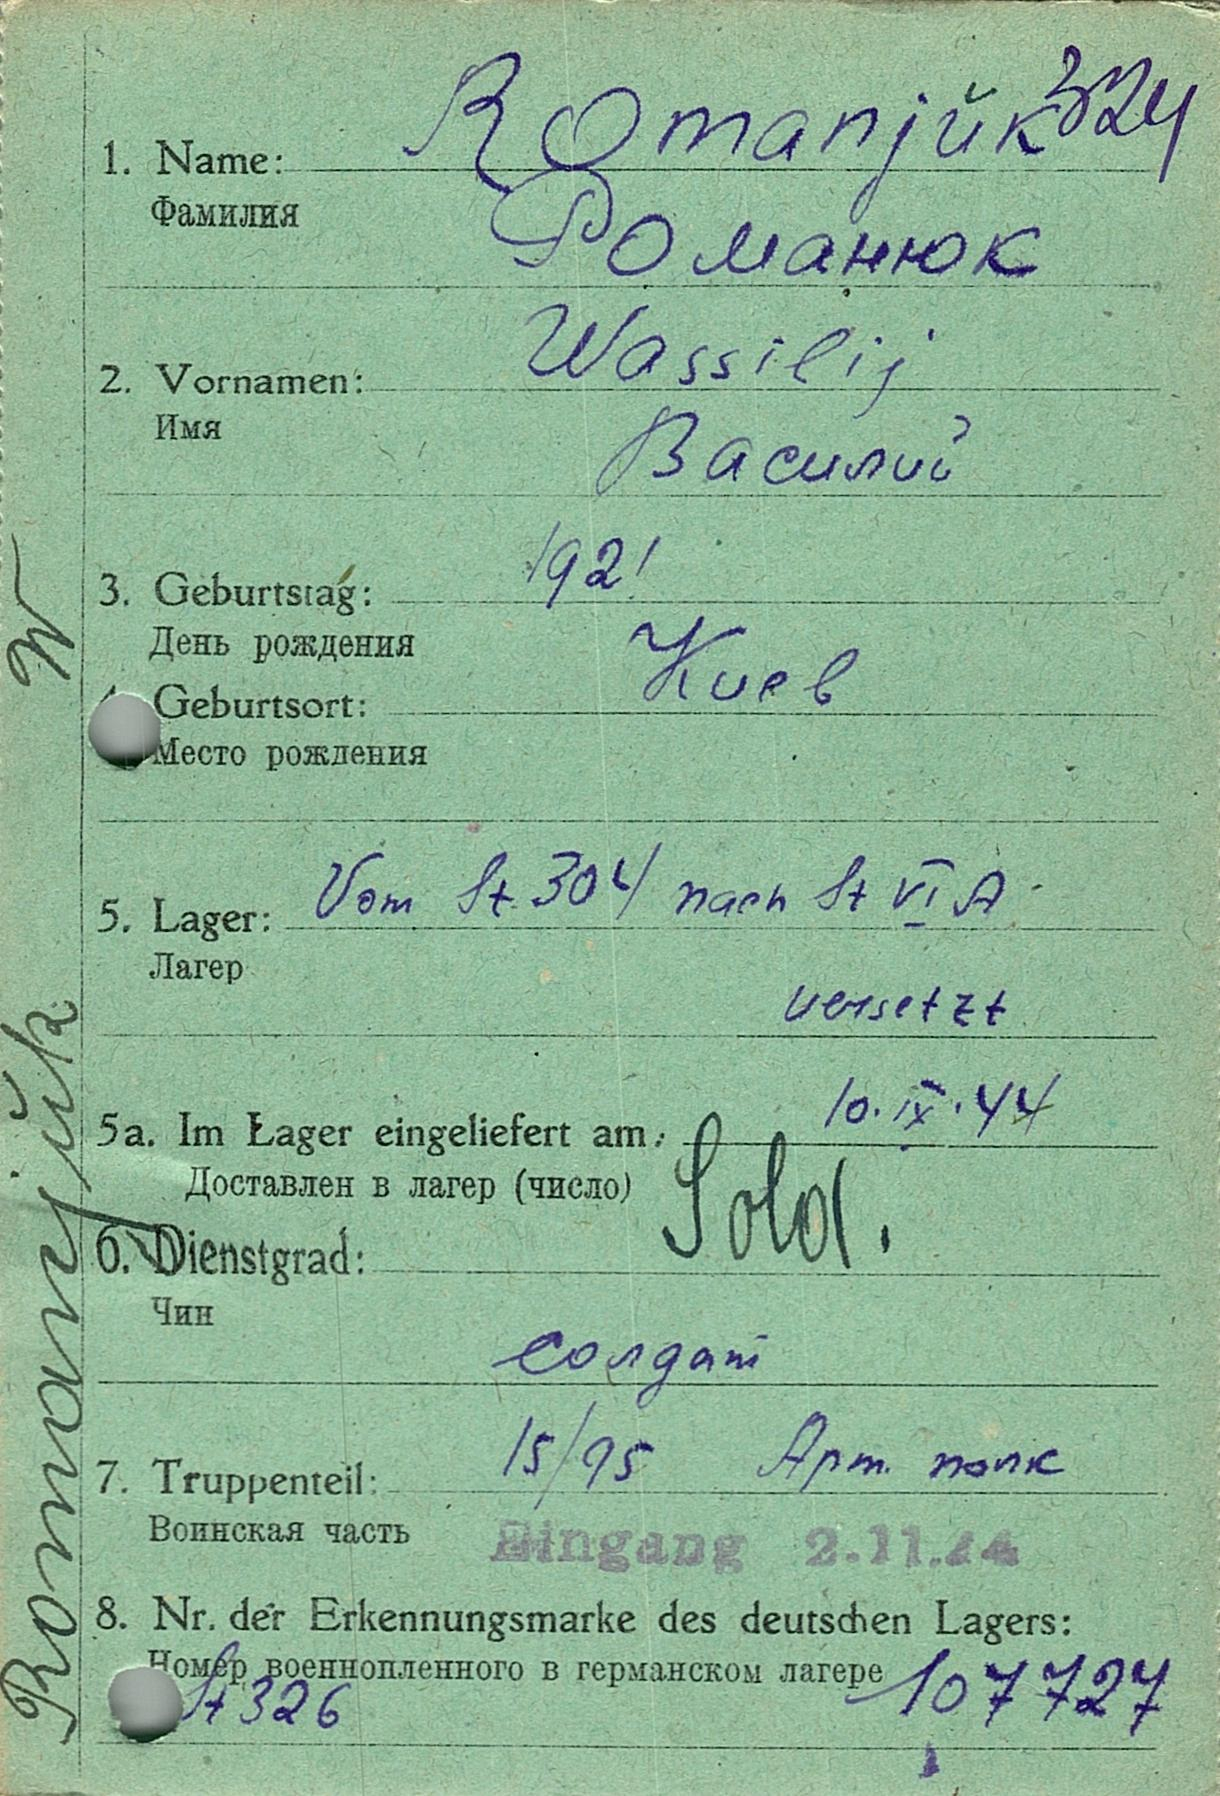 324
1. Name: Romanjŭk
Фамилия
Романюк
Wassilij
2. Vornamen:
Имя
Василий
3. Geburtstag: 1921
День рождения
Geburtsort: Киев
Место рождения
5. Lager: Vom St. 304 nach St VI A
Лагер
versetzt
5a. Im Lager eingeliefert am: 10.IX.44
Доставлен в лагер (число)
6. Dienstgrad: Sold.
Чин
солдат
7. Truppenteil: 15/95 Арт. полк
Воинская часть
Eingang 2.11.44
8. Nr. der Erkennungsmarke des deutschen Lagers:
Номер военнопленного в германском лагере 107727
St 326
Romanjŭk W